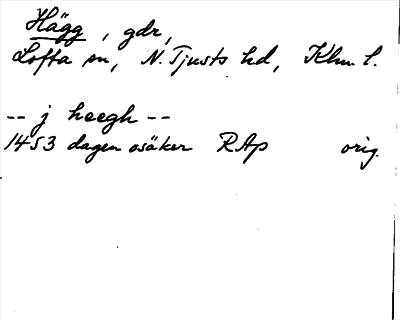 Hägg, gdr,
Lofta sn, N. Tjusts hd, Klm. l.
-- j heegh --
1453 dagen osäker RAp orig.